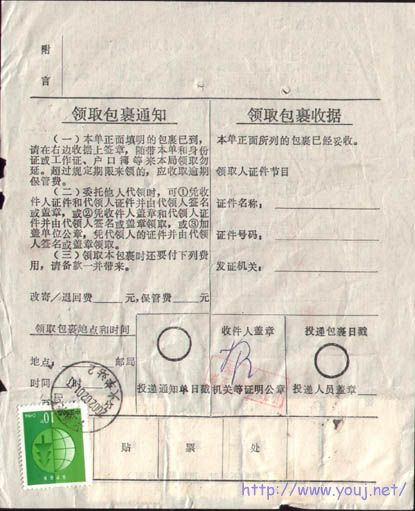 附
言
领取包裹通知
(一)本单正面填明的包裹已到,
请在右边收据上签章,随带本单和身份
证或工作证、户口簿等来本局领取勿
延。超过规定期限来领的,应收取逾期
保管费。
(二)委托他人代领时,可①凭收
件人证件和代领人证件并由代领人签名
或盖章,或②凭收件人盖章和代领人证
件并由代领人签名或盖章领取,或③加
盖单位公章,凭代领人的证件并由代领
人签名或盖章领取。
(三)领取本包裹时还要付下列费
用,请备款一并带来。
改寄/退回费 元,保管费 元
领取包裹收据
本单正面所列的包裹已经妥收。
领取人证件节目
证件名称:
证件号码:
发证机关:
领取包裹地点和时间
地点 邮局
时间
投递通知单日戳
收件人盖章
机关等证明公章
投递包裹日戳
投递人员盖章
贴 票 处
2002.02.04
10分
CHINA
http://www.youj.net/